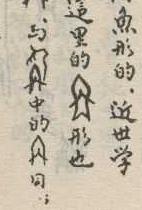 魚形的，近世学
這里的形也
与中的同；